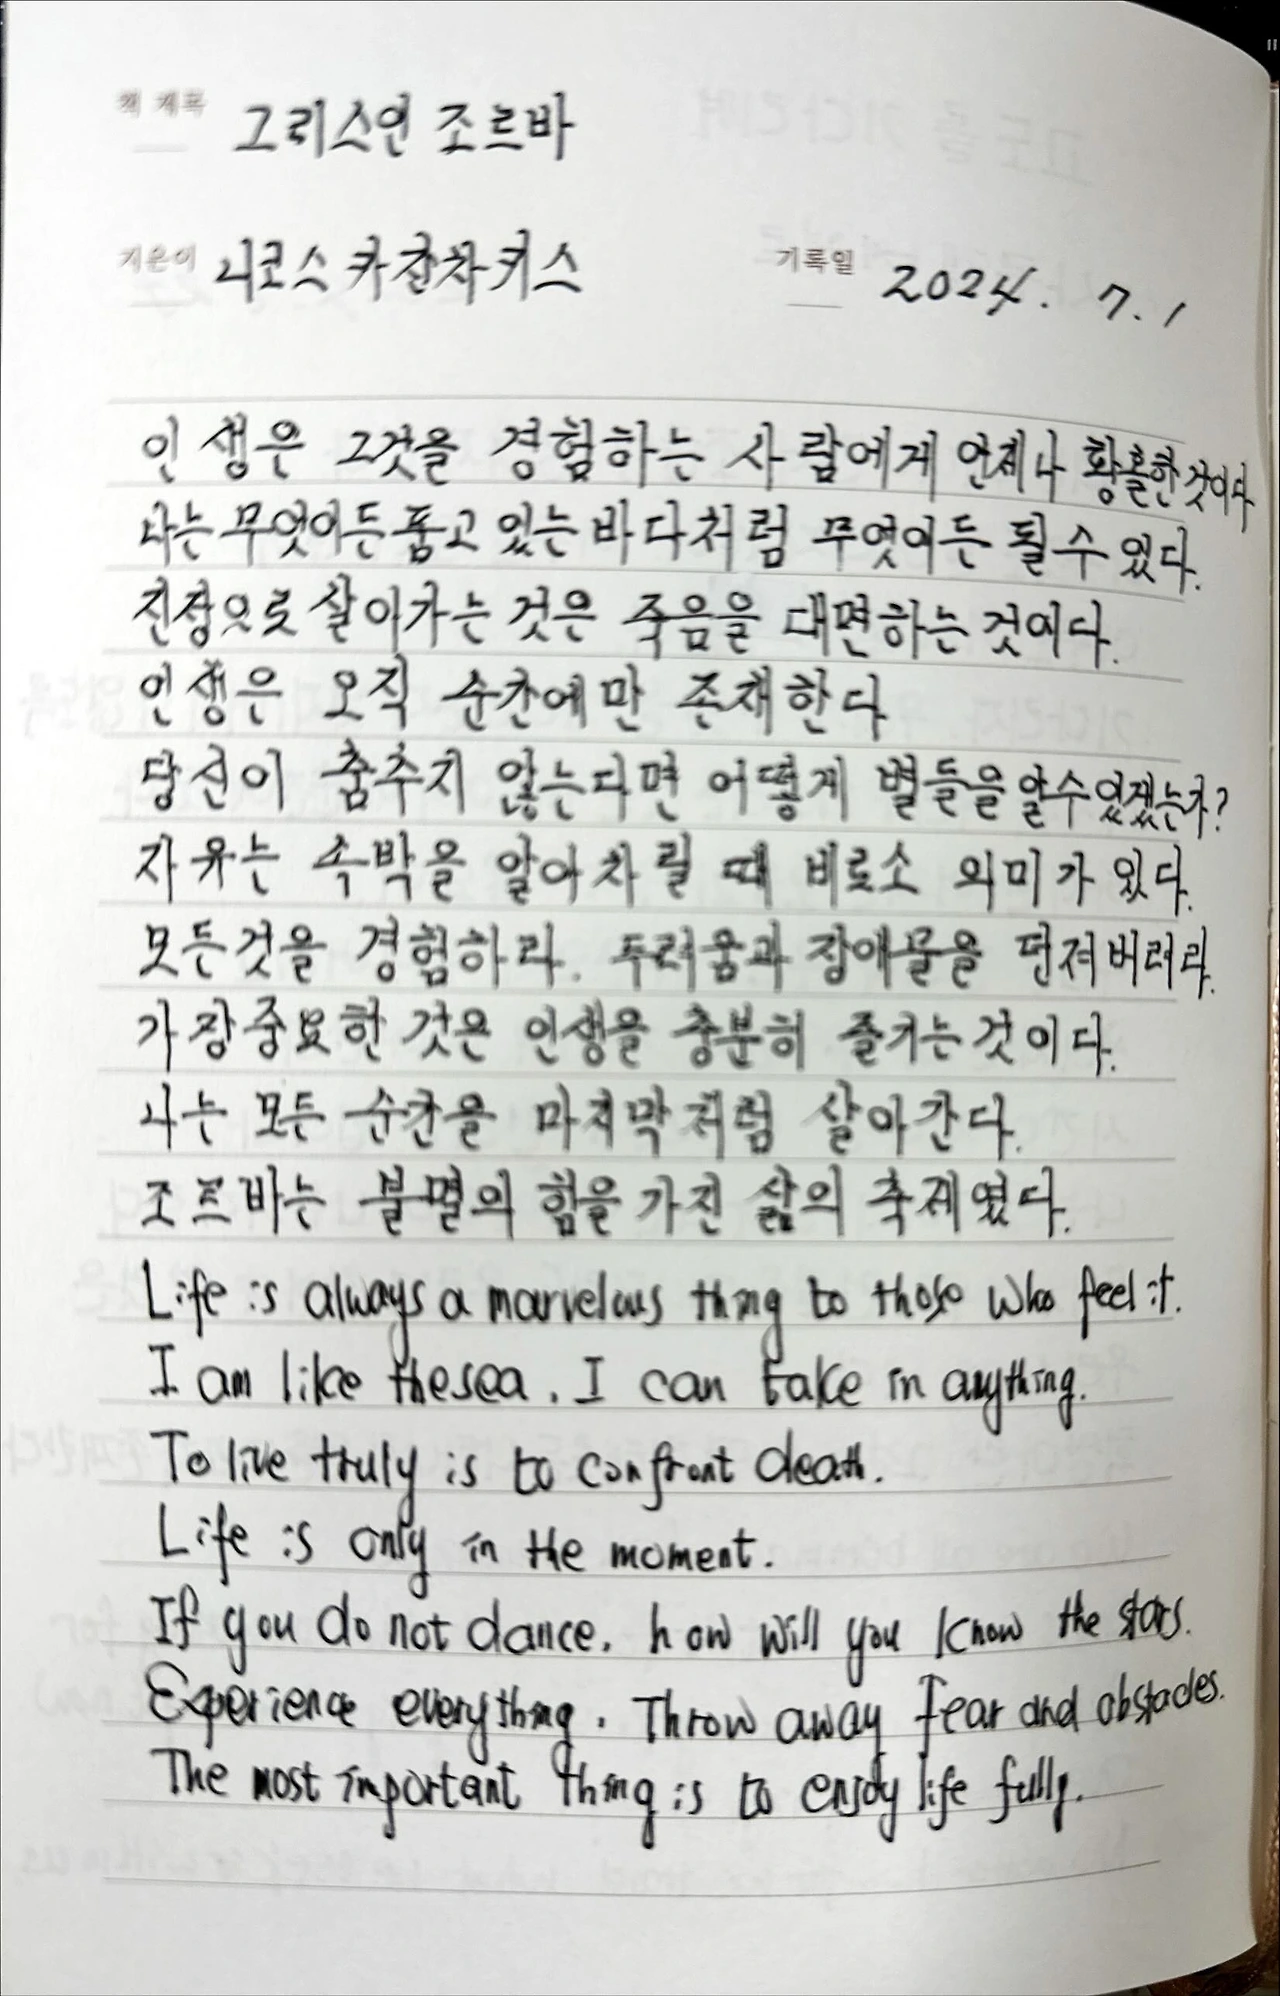 책 제목 그리스인 조르바
지은이 니코스 카잔차키스 기록일 2024. 7. 1
인생은 그것을 경험하는 사람에게 언제나 황홀한 것이다
나는 무엇이든 품고 있는 바다처럼 무엇이든 될 수 있다.
진정으로 살아가는 것은 죽음을 대면하는 것이다.
인생은 오직 순간에만 존재한다
당신이 춤추지 않는다면 어떻게 별들을 알 수 있겠는가?
자유는 속박을 알아차릴 때 비로소 의미가 있다.
모든것을 경험하라. 두려움과 장애물을 던져버려라.
가장중요한 것은 인생을 충분히 즐기는 것이다.
나는 모든 순간을 마지막처럼 살아간다.
조르바는 불멸의 힘을 가진 삶의 축제였다.
Life is always a marvelous thing to those who feel it.
I am like the sea. I can take in anything.
To live truly is to confront death.
Life is only in the moment.
If you do not dance. how will you know the stars.
Experience everything. Throw away fear and obstacles.
The most important thing is to enjoy life fully.